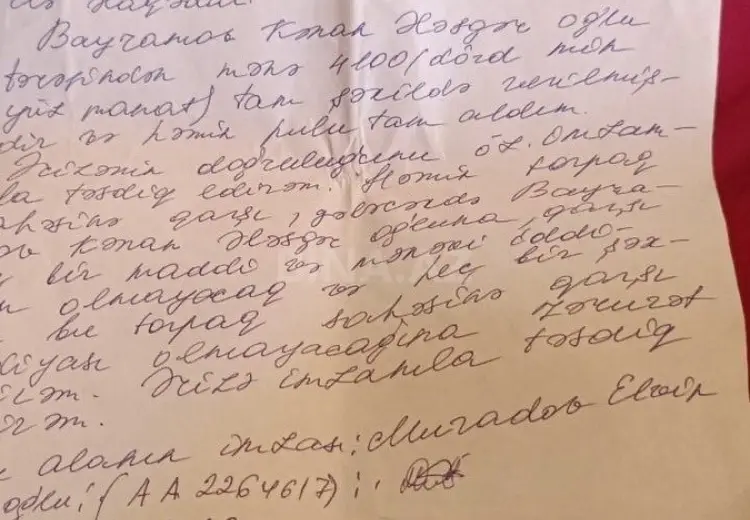 Bayramov Kənan Ələsgər oğlu
tərəfindən mənə 4100 (dörd min
yüz manat) tam şəkildə verilmiş-
dir və həmin pulu tam aldım.
Ərizənin doğruluğunu öz imzam-
la təsdiq edirəm. Həmin torpaq
sahəsinə qarşı, gələcəkdə Bayra-
ov Kənan Ələsgər oğluna, qarşı
bir maddi və mənəvi iddi-
olmayacaq və heç bir şəx-
bu torpaq sahəsinə qarşı
diyası olmayacağına zəmurət
irəm. Ərizə imzamla təsdiq
irəm.
alanın imzası: Muradov Elvin
oğlu; (AA 2264617);
BINA.AZ